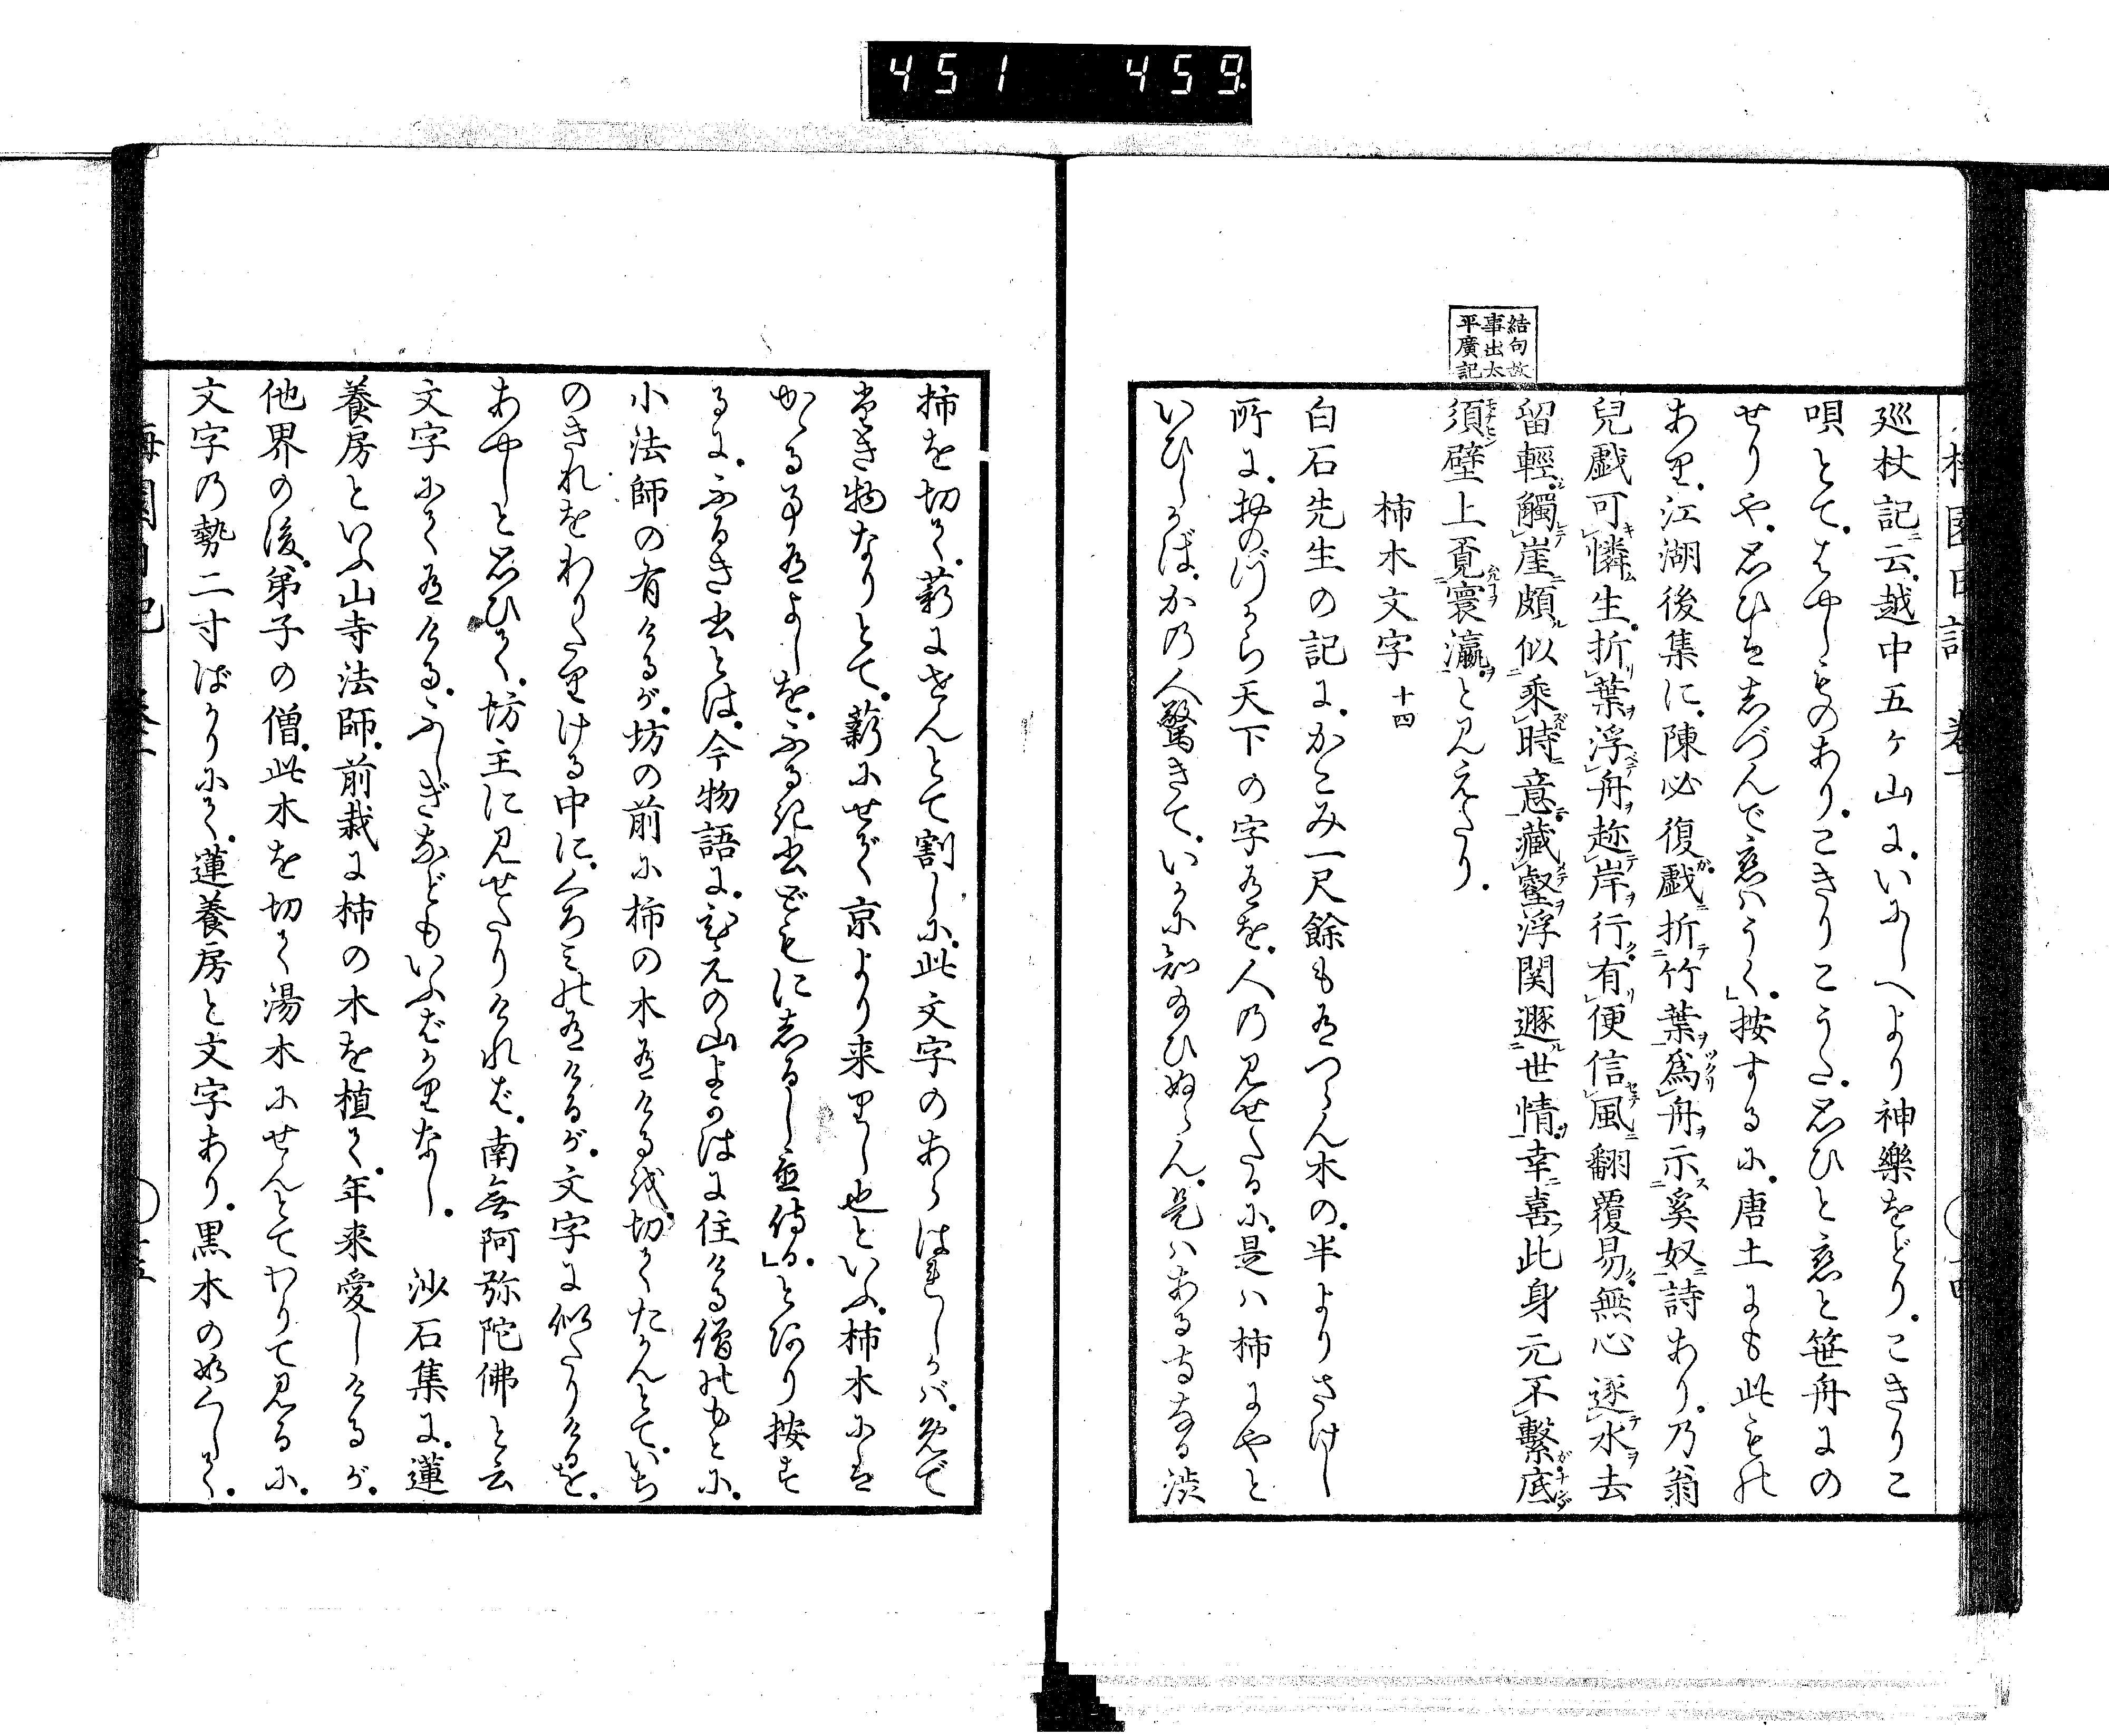 451 459
梅園日記 卷二 十四
廵杖記ニ云越中五ケ山に。いにしへより神樂をどり。こきりこ
唄とて。はやしものあり。こきりこうた。思ひと恋と笹舟にの
せりや。思ひはしづんで恋ハうく」按するに。唐土にも此もの
あり。江湖後集に。陳必復戯折竹葉爲舟示奚奴詩あり。乃翁
兒戯可憐生。折葉浮舟趂岸行。有便信風翻覆易。無心逐水去
留輕。觸崖頗似乘時意。藏壑浮関遯世情。幸喜此身元不繫。底
須壁上覔寰瀛。と見えたり。
結句故
事出太
平廣記
柿木文字 十四
白石先生の記に。かこみ一尺餘も有つらん木の。半よりさけし
所に。おのづから天下の字有を。人の見せたるに。是ハ柿にやと
いひしかば。かの人驚きて。いかに知給ひぬらん。是ハある寺なる渋
柿を切て。薪にせんとて割しに。此文字のあらはれしかバ。めで
たき物なりとて。薪にせで京より来りし也といふ。柿木には
かゝる事有よしを。ふる記書どもにしるし置侍る」とあり按ず
るに。ふるき書とは。今物語に。ひえの山よかはに住ける僧のもとに。
小法師の有けるが。坊の前に柿の木有ける我。切てたかんとて。いち
のきれをわりたりける中に。くろみの有けるが。文字に似たりけるを。
あやしと思ひて。坊主に見せたりければ。南無阿弥陀佛と云
文字にて有ける。ふしぎなどもいふばかりなし。 沙石集に。蓮
養房といふ山寺法師。前栽に柿の木を植て。年来愛しけるが。
他界の後。弟子の僧。此木を切て湯木にせんとてわりて見るに。
文字の勢二寸ばかりにて。蓮養房と文字あり。黒木の如くして。
梅園日記 卷二 十五